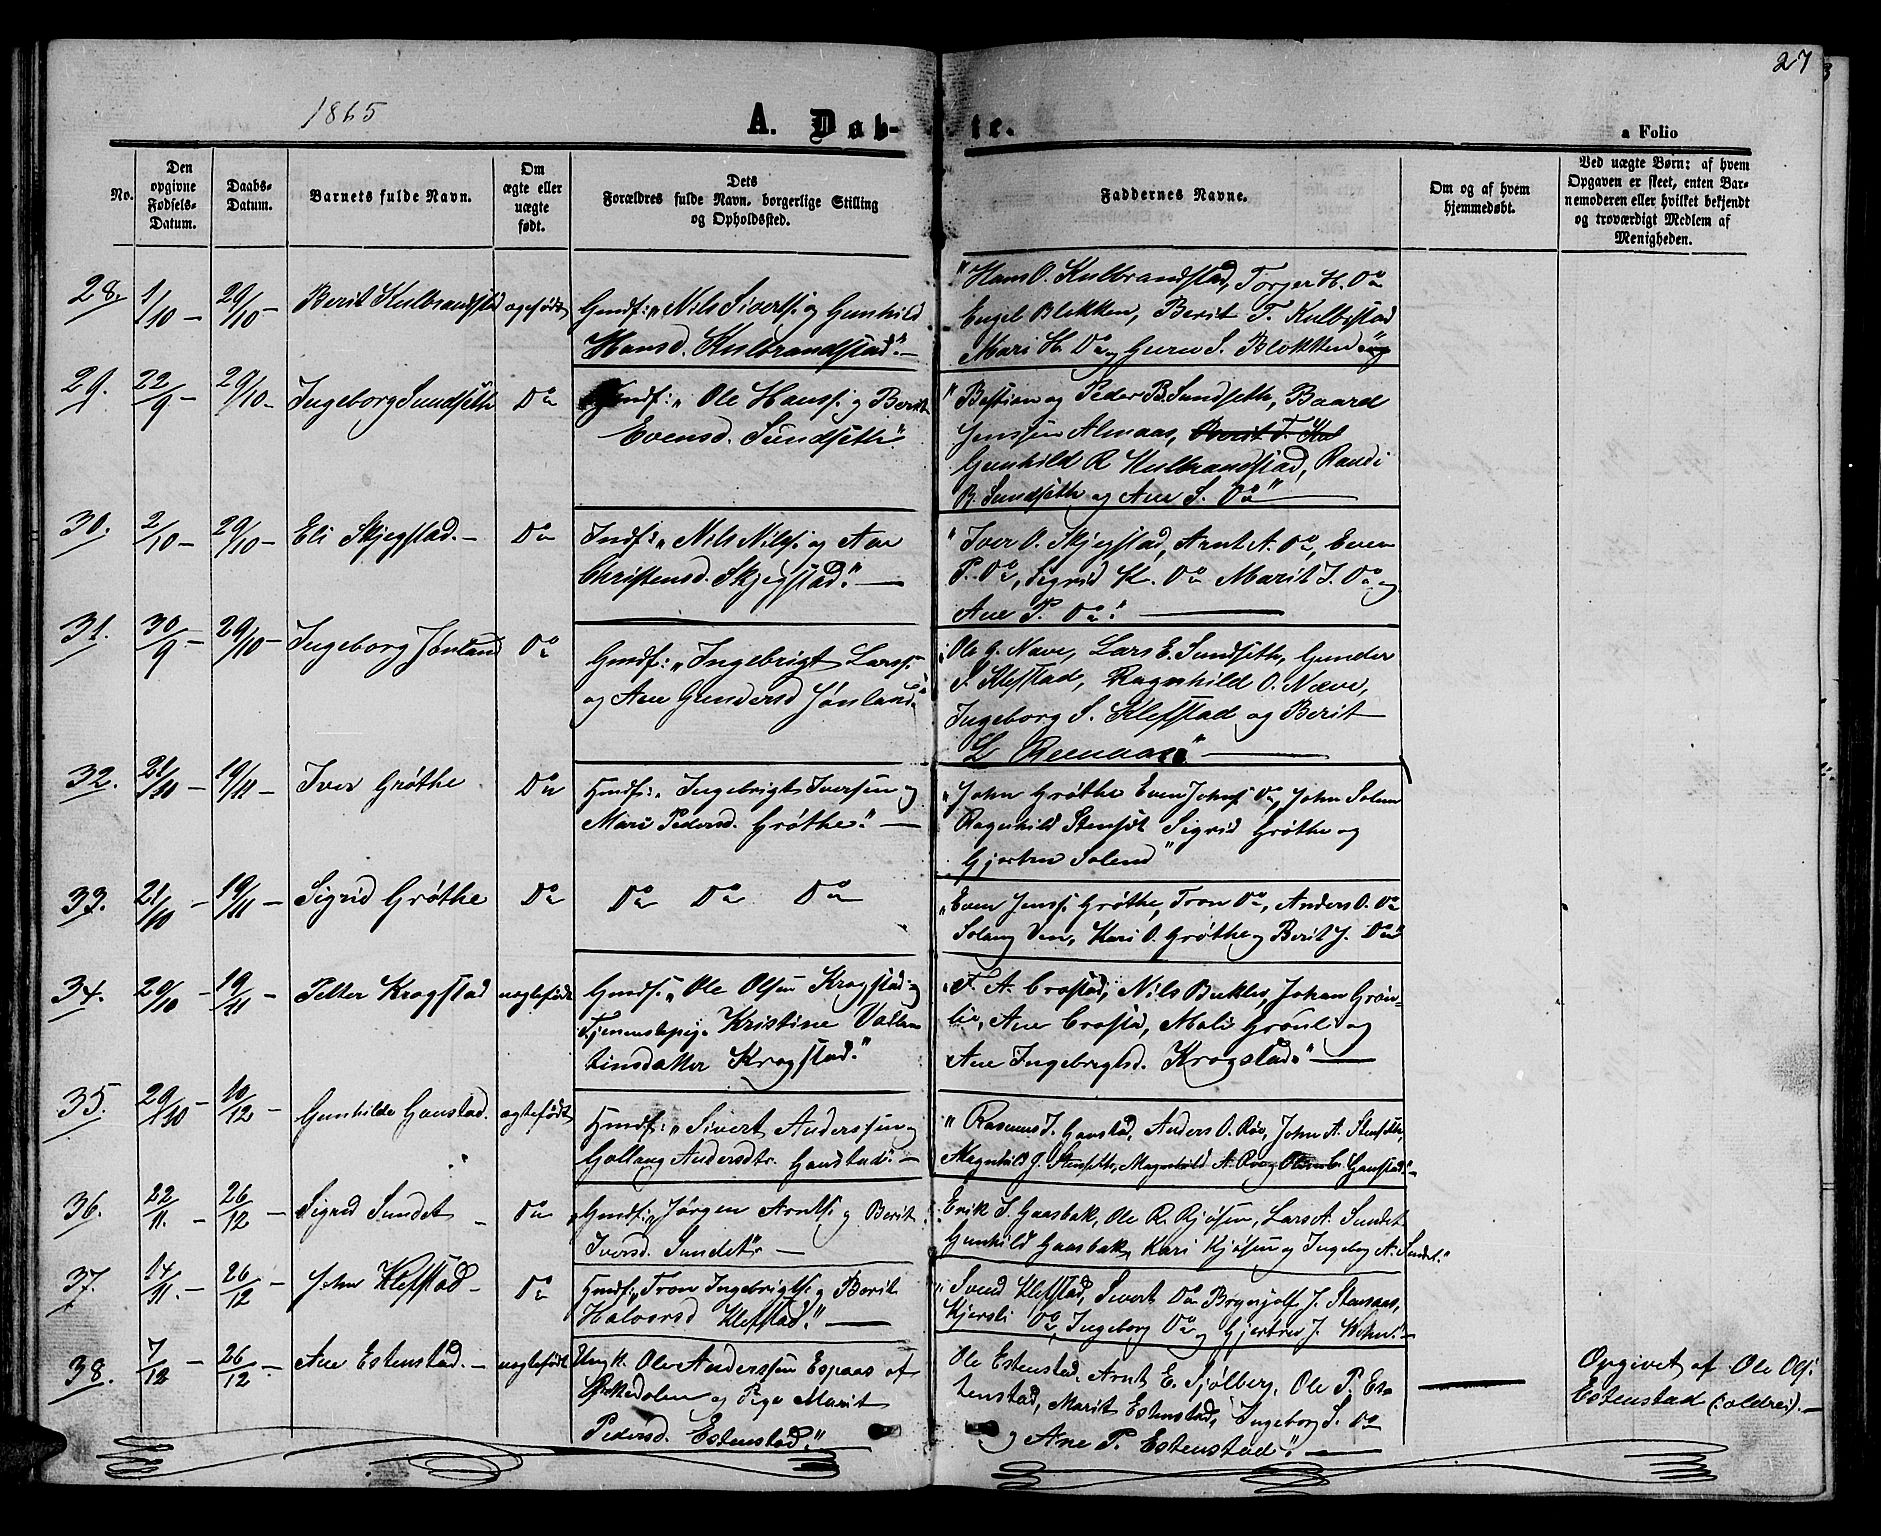 27
1865
A. Døb-
te.
a Folio
No.
Den
opgivne
Fødsels-
Datum.
Daabs-
Datum.
Barnets fulde Navn.
Om
ægte eller
uægte
født.
Dets
Forældres fulde Navn, borgerlige Stilling
og Opholdssted.
Faddernes Navne.
Om og af hvem
hjemmedøbt.
Ved uægte Børn: af hvem
Opgaven er skeet, enten Bar-
nemoderen eller hvilket bekjendt
og troværdigt Medlem af
Menigheden.
28. 1/10 - 29/10 - Berit Kulbrandstad ægtefødt
Gmdf: „Nils Sivertss. og Gunhild
Hansd. Kulbrandstad." -
"Hans O. Kulbrandstad, Torger H. Do
Engel Blokken, Berit T. Kulbrstad
Mari H. Do og Guru S. Blokken"
29. 22/9 - 29/10 - Ingeborg Sundseth Do
Gmdf: „Ole Hanss. og Berit
Evensd. Sundseth."
"Bastian og Peder B. Sundseth, Baard
Jenssen Almaas, Berit T. Kul
Gunhild R Kulbrandstad, Randi
B. Sundseth og Ane S. Do"
30. 2/10 - 29/10 - Eli Skjegstad. - Do
Indf: „Nils Nilss. og Ane
Christensd. Skjegstad." -
"Iver O. Skjegstad, Arnt A. Do, Even
P. Do, Sigrid K. Do Marit J. Do og
Ane P. Do."
31. 30/9 - 29/10 - Ingeborg Jønland Do
Gmdf: „Ingebrigt Larss.
og Ane Gundersd Jønland."
"Ole G. Næve, Lars E. Sundseth, Gunder
S. Klefstad, Ragnhild O. Næve,
Ingeborg S. Klefstad og Berit
L Reenaas"
32. 21/10 - 19/11 - Iver Grøthe Do
Gmdf: „Ingebrigt Iversen og
Mari Pedersd. Grøthe." -
"John Grøthe Even Johns Do, John Solem
Ragnhild Stensét Sigrid Grøthe og
Gjertru Solem"
33. 21/10 19/11 - Sigrid Grøthe Do
Do Do Do
"Even Jenss. Grøthe, Tron Do, Anders O. Do
Solaug Ven, Kari O. Grøthe og Berit J. Do"
34. 20/10 - 19/11 - Petter Krogstad uægtefødt
Gmdf: „Ole Olsen Krogstad og
Tjenestepige Kristine Vallen
tinsdatter Krogstad."
"F. A. Crostad, Nils Bukler, Johan Grøn-
lie, Ane Crostad, Mali Grønli og
Ane Ingebrigtsd. Krogstad." -
35. 29/10 - 10/12 - Gunhilde Gaustad. ægtefødt
Gmdf: „Sivert Anderssen og
Gollaug Andersdtr. Gaustad." -
"Rasmus J. Gaustad, Anders O. Roe, John A. Stenseth,
Magnhild J. Stenseth, Magnhild A. Ro og Gaustad." -
36. 22/11. - 26/12 - Sigrid Sundet - Do
Gmdf: „Jørgen Arntss. og Berit
Iversd. Sundet" -
"Erik S. Gaasbak, Ole R. Kjøsen, Lars A. Sundet
Gunhild Gaasbak, Kari Kjøsen og Ingebor A. Sundet."
37. 14/11. - 26/12 - John Klefstad - Do
Gmdf: „Tron Ingebrigtss. og Berit
Halvorsd Klefstad." -
"Svend Klefstad, Sivert Do Brynjolf J. Stensaas,
Kjersti Do, Ingeborg Do og Gjertru J. Wehn." -
38. 7/12 - 26/12 - Ane Estenstad. - uægtefødt
Ungk. Ole Anderssen Espaas af
Ørkedalen og Pige Marit
Pedersd. Estenstad."
Ole Estenstad, Arnt E. Sjølberg, Ole P. Es-
tenstad, Marit Estenstad, Ingeborg S. Do
og Ane P. Estenstad." -
Opgivet af Ole Ols.
Estenstad (: ældre :). -